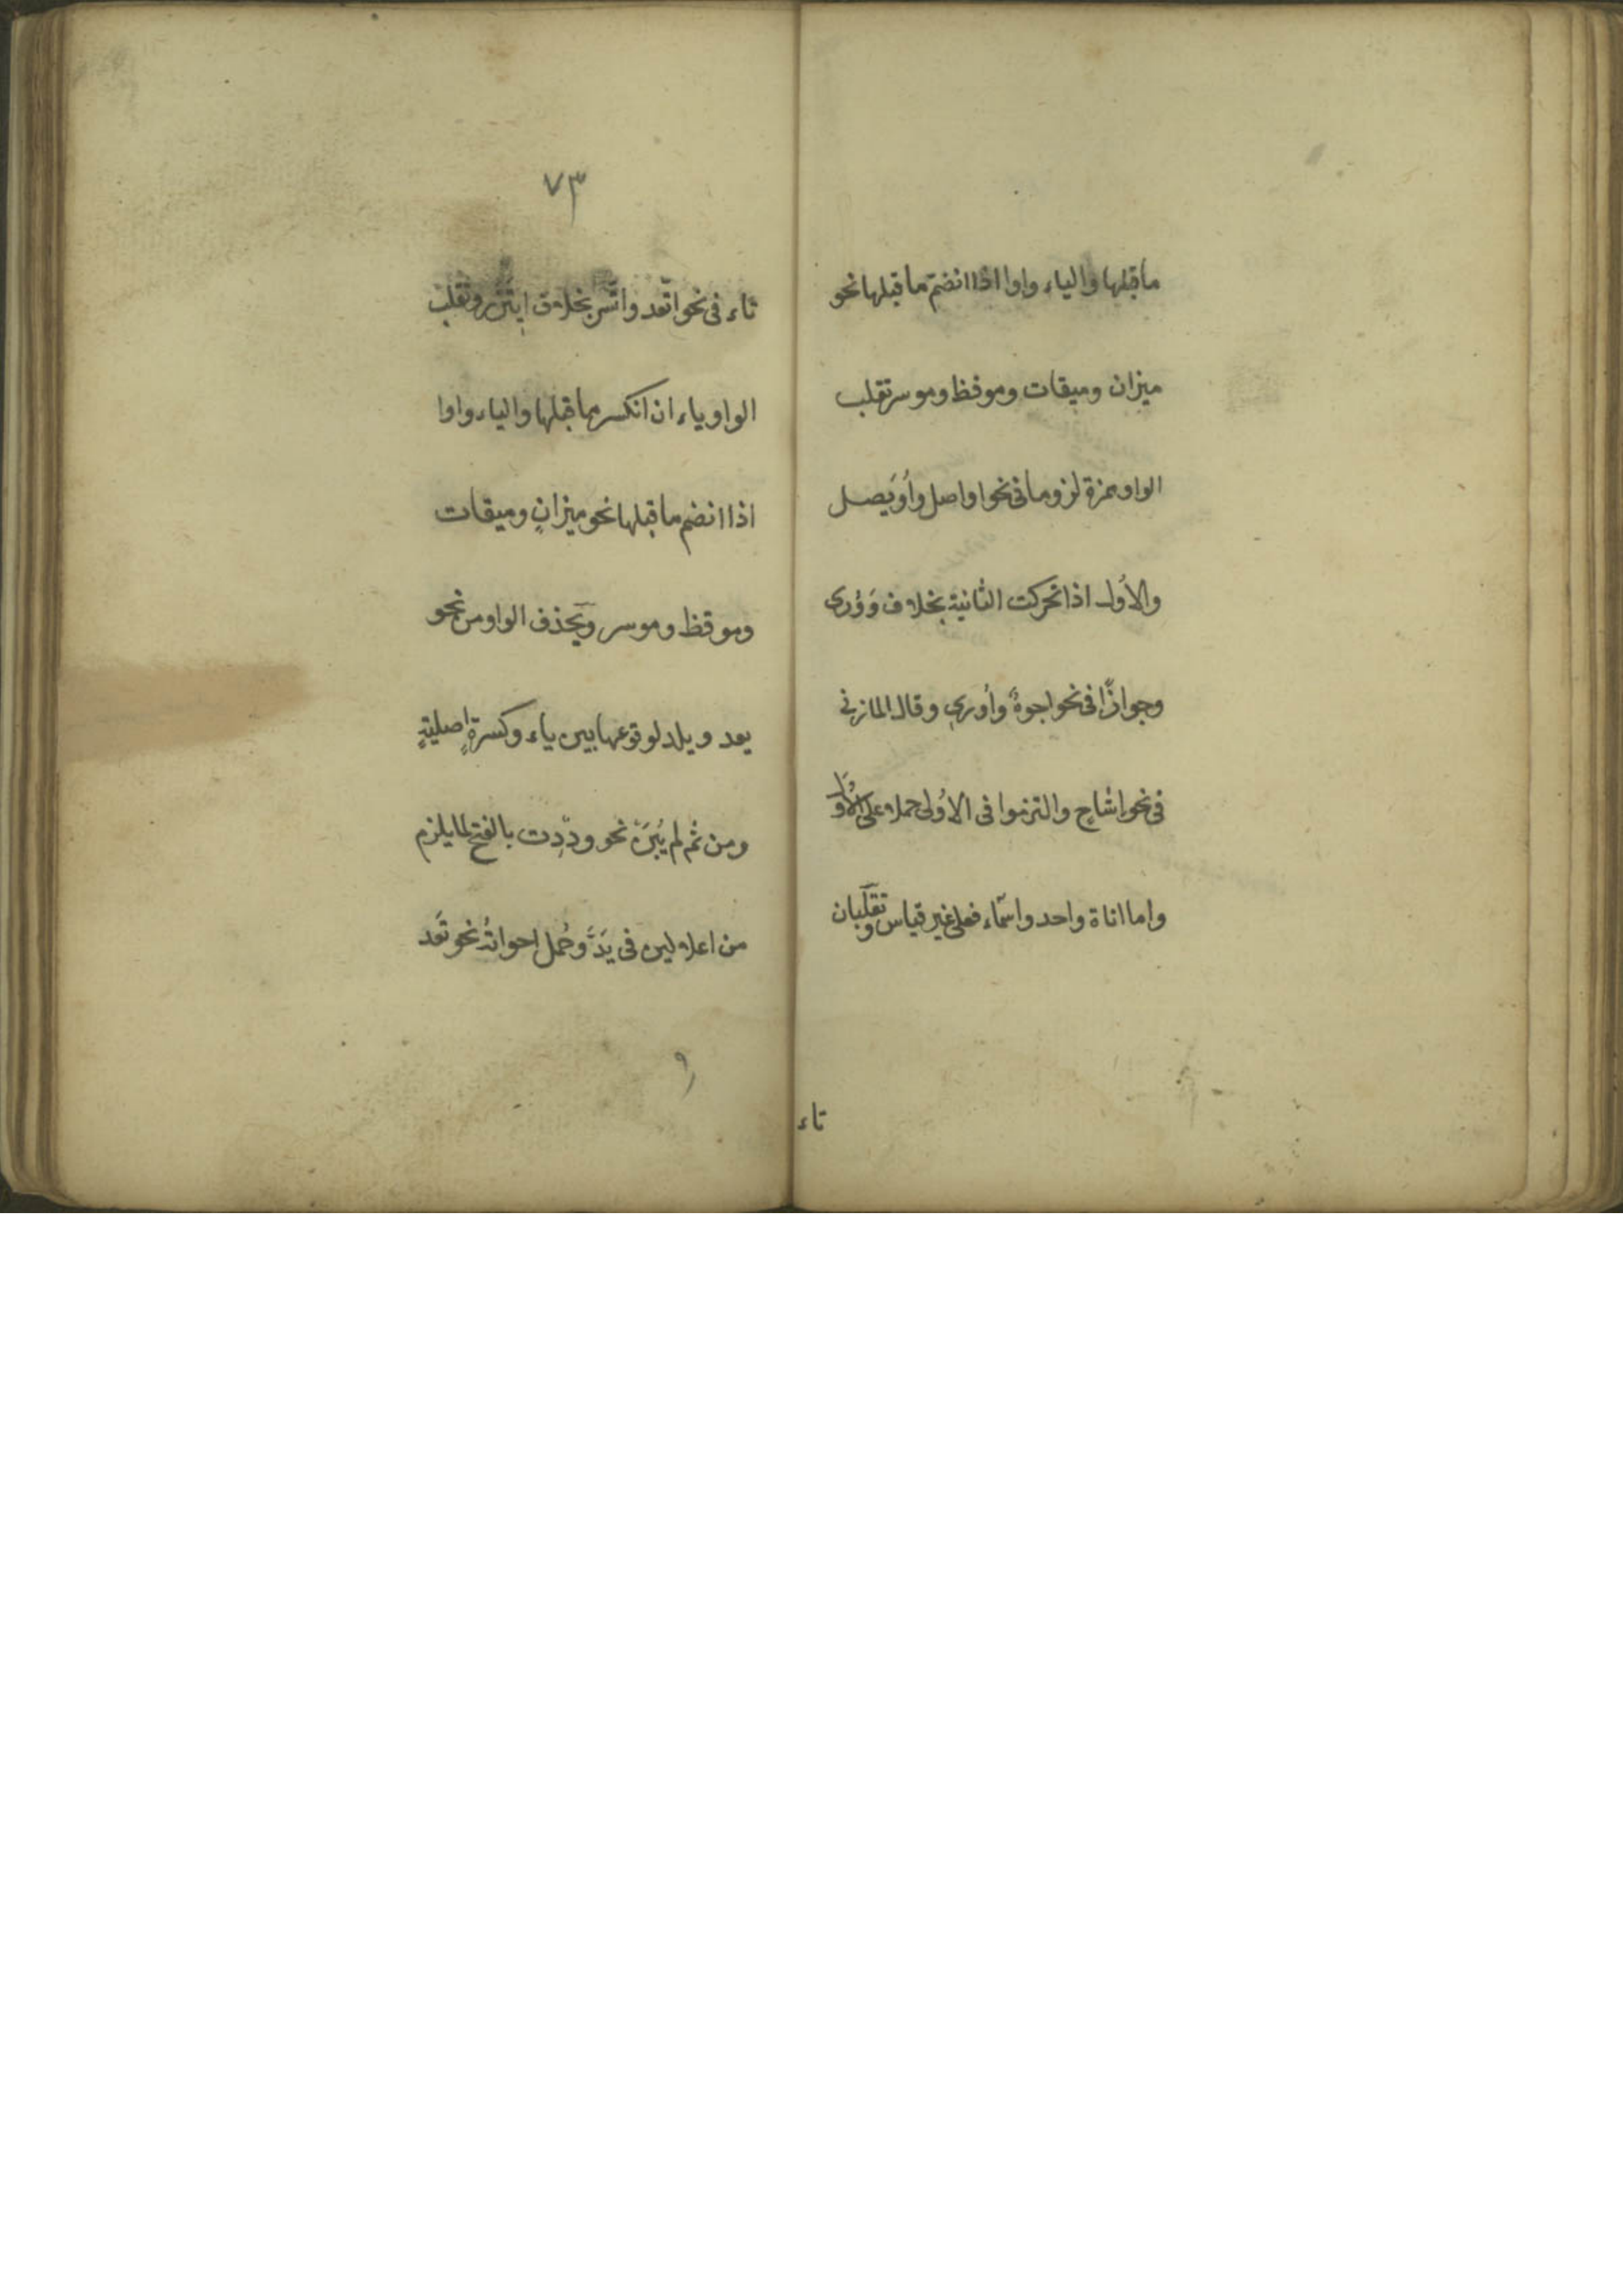 ما قبلها والياء واوا اذا انضم ما قبلها نحو
ميزان وميقات وموقظ وموسر تقلب
الواو همزة لزوما فى نحو اواصل واُوَيصل
والاُول اذا تحركت الثانية بخلاف وَوُرى
وجوازًا فى نحو اجوهٌ واُورى وقال المازنى
فى نحو اشاح والتزموا فى الاُولى حملا على الاُوَل
واما اناة واحد واسمّاء فعلى غير قياس وتقلبان
تاء
٧٣
تاء فى نحو اتّعد واتّسر بخلاف ايتزر وتقلب
الواو ياء ان انكسر ما قبلها والياء واوا
اذا انضم ما قبلها نحو ميزانٍ وميقات
وموقظ وموسر وتحذف الواو من نحو
يعد ويلد لوقوعها بين ياء وكسرةٍ اصليةٍ
ومن ثم لم يُبْنَ نحو ودِدت بالفتح لما يلزم
من اعلالين فى يَدّ وحُمل اخواتُه نحو تَعد